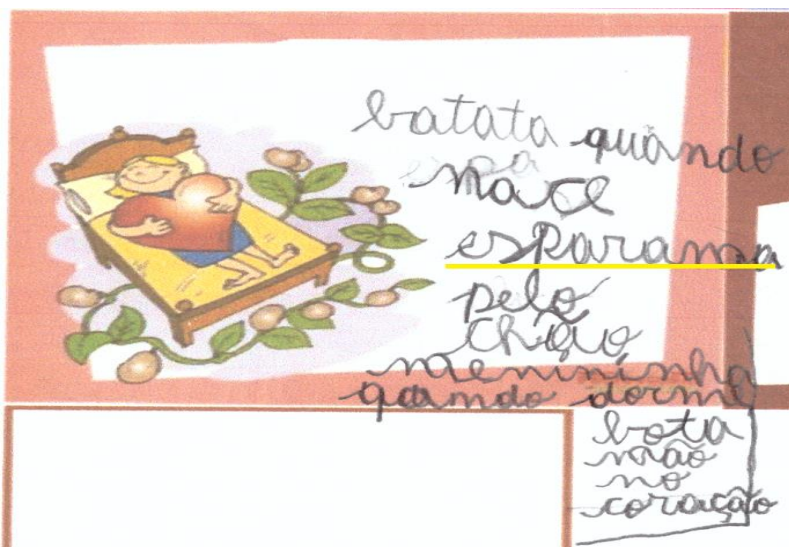 batata quando
nace
esparama
pelo
chão
menininha
quando dorme
bota
mão
no
coração